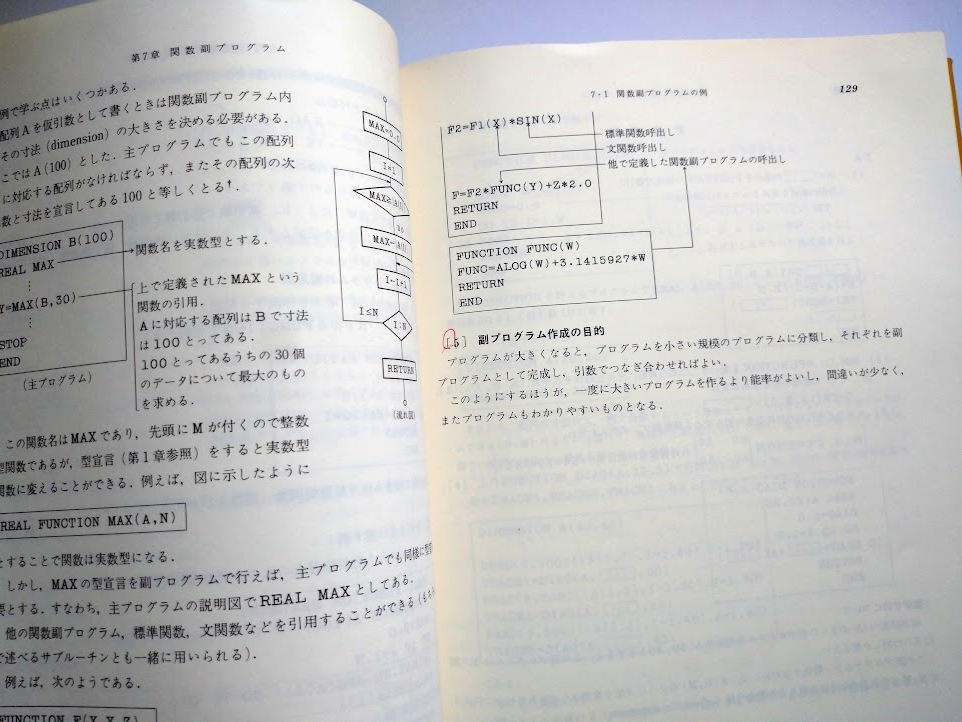 第7章 関数副プログラム
例で学ぶ点はいくつかある.
配列Aを仮引数として書くときは関数副プログラム内
その寸法(dimension)の大きさを決める必要がある.
こではA(100)とした.主プログラムでもこの配列
に対応する配列がなければならず,またその配列の次
数と寸法を宣言してある100と等しくとる†.
DIMENSION B(100)
REAL MAX
関数名を実数型とする.
⋮
Y=MAX(B,30)
⋮
STOP
END
(主プログラム)
上で定義されたMAXという
関数の引用.
Aに対応する配列はBで寸法
は100とってある.
100とってあるうちの30個
のデータについて最大のもの
を求める.
MAX=0.0
I=1
MAX≥A(I)
MAX=A(I)
I=I+1
I≤N
I:N
RETURN
(流れ図)
この関数名はMAXであり,先頭にMが付くので整数
型関数であるが,型宣言(第1章参照)をすると実数型
関数に変えることができる.例えば,図に示したように
REAL FUNCTION MAX(A,N)
とすることで関数は実数型になる.
しかし,MAXの型宣言を副プログラムで行えば,主プログラムでも同様に型
要とする.すなわち,主プログラムの説明図でREAL MAXとしてある.
他の関数副プログラム,標準関数,文関数などを引用することができる(
で述べるサブルーチンとも一緒に用いられる).
例えば,次のようである.
FUNCTION F(X,Y,Z)
7・1 関数副プログラムの例
129
F2=F1(X)*SIN(X)
標準関数呼出し
文関数呼出し
他で定義した関数副プログラムの呼出し
F=F2*FUNC(Y)+Z*2.0
RETURN
END
FUNCTION FUNC(W)
FUNC=ALOG(W)+3.1415927*W
RETURN
END
[5] 副プログラム作成の目的
プログラムが大きくなると,プログラムを小さい規模のプログラムに分類し,それぞれを副
プログラムとして完成し,引数でつなぎ合わせればよい.
このようにするほうが,一度に大きいプログラムを作るより能率がよいし,間違いが少なく,
またプログラムもわかりやすいものとなる.